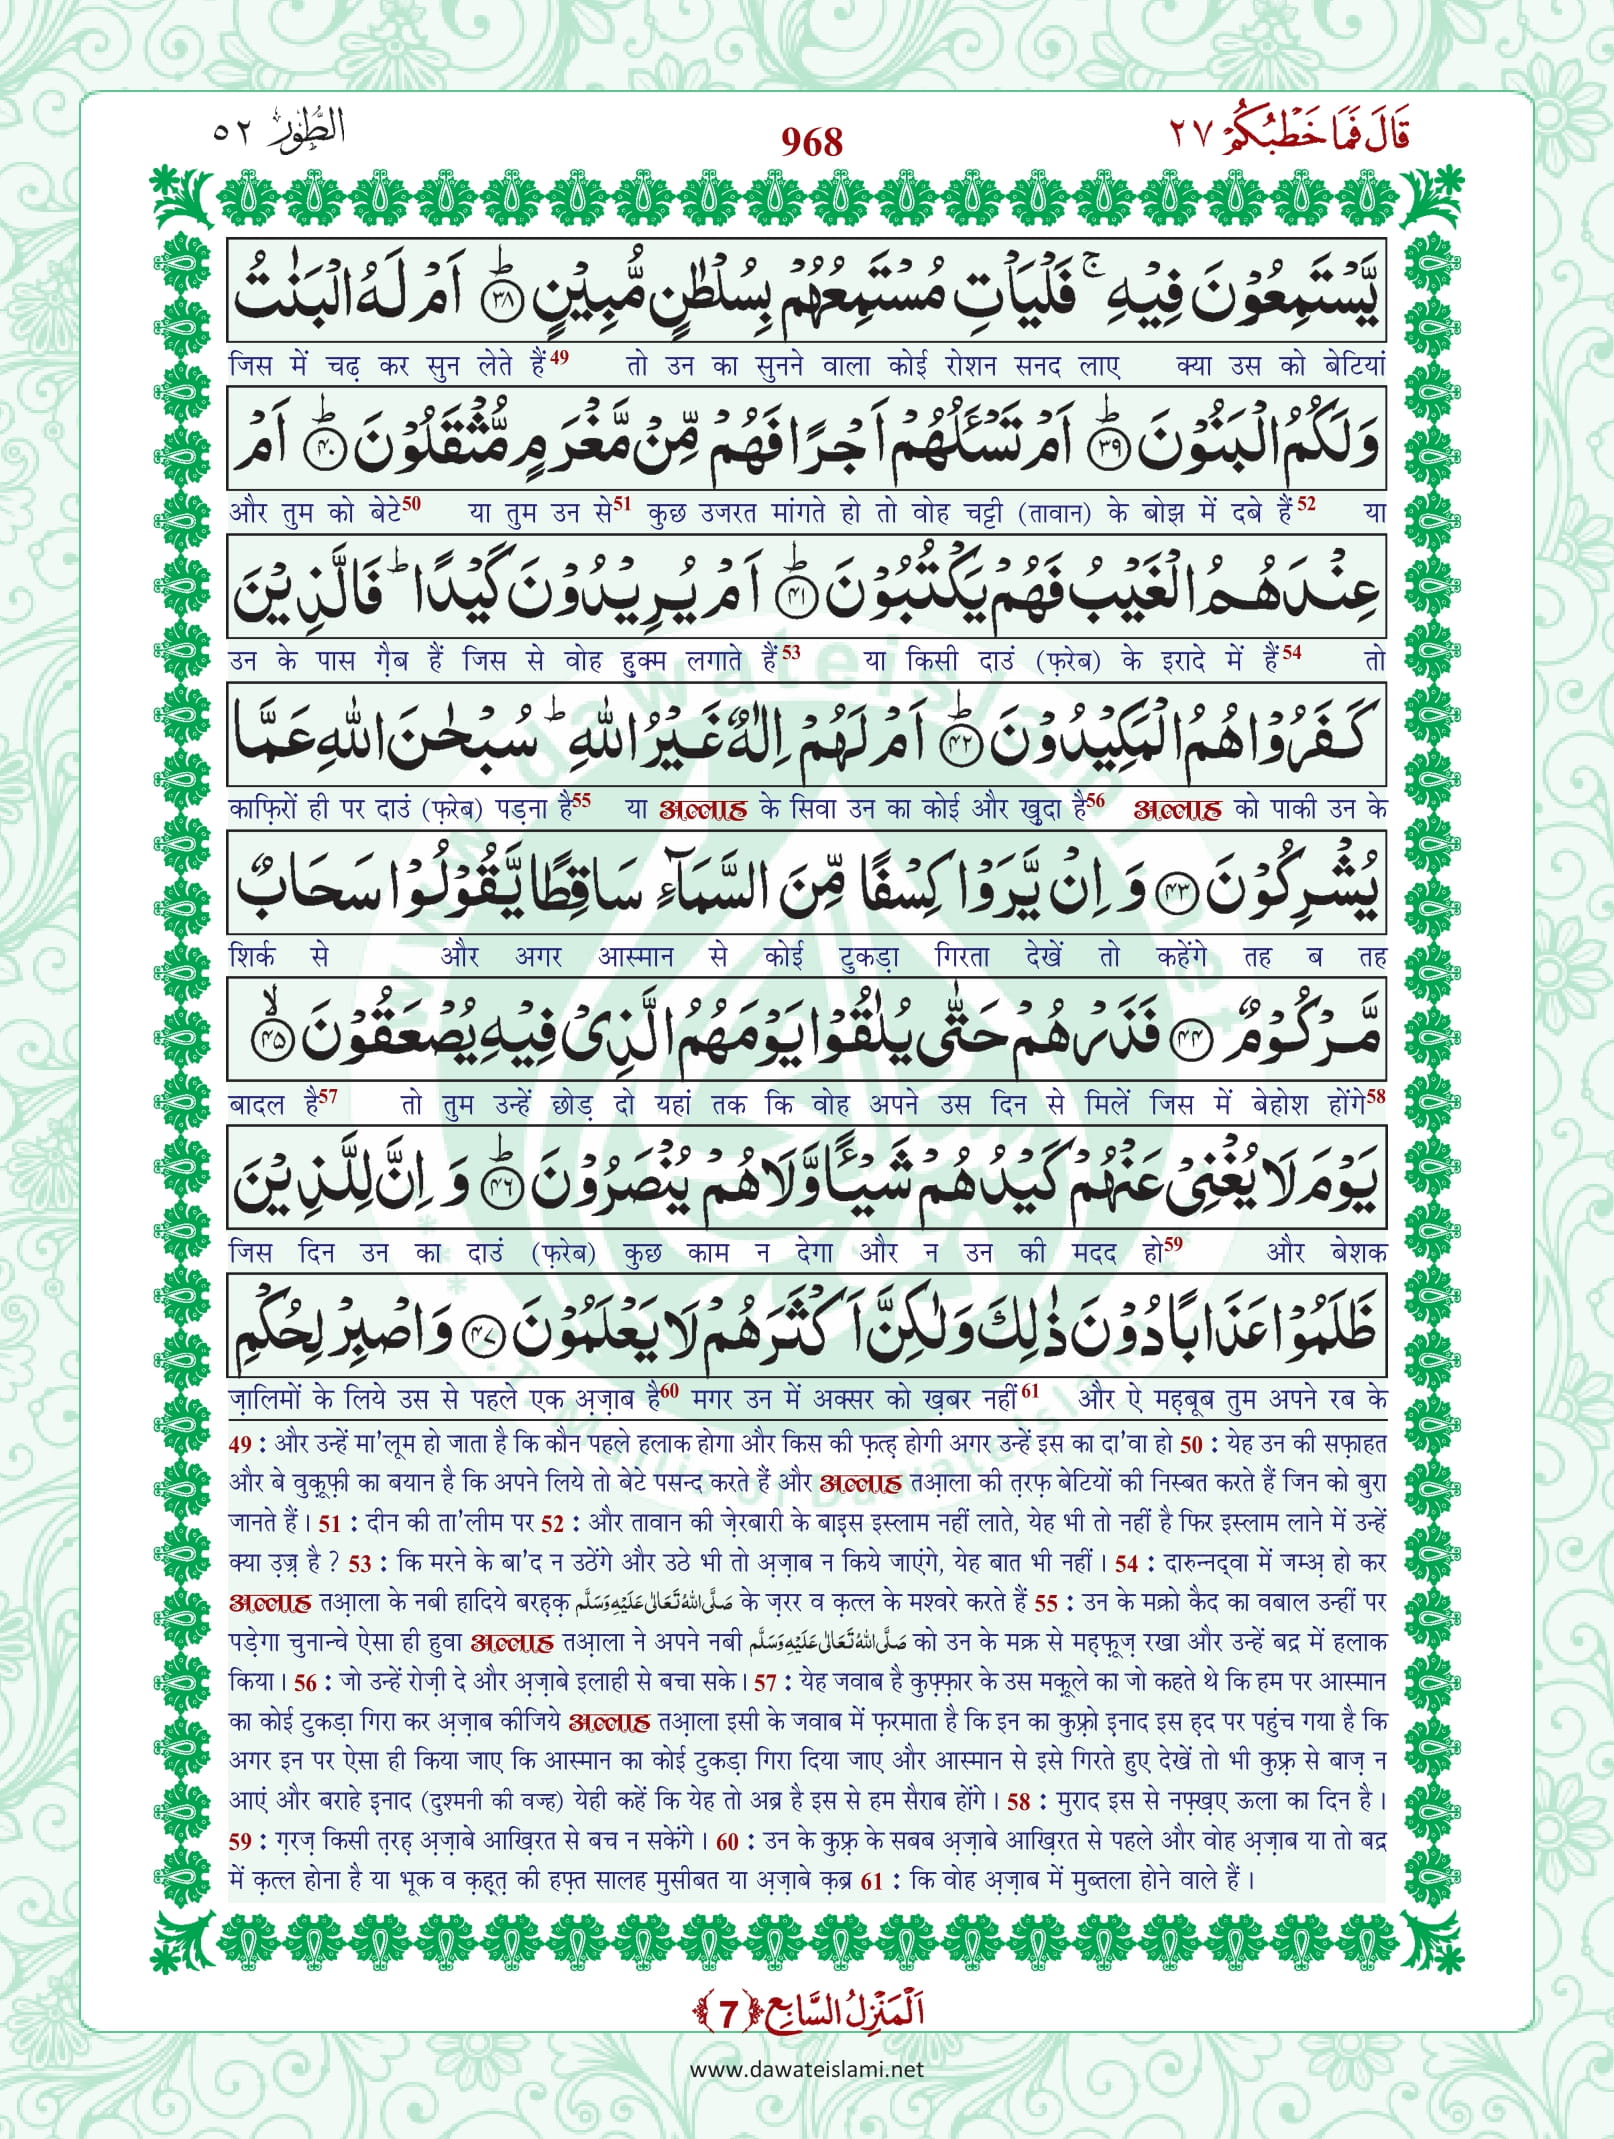 قَالَ فَمَا خَطْبُكُمْ ٢٧
968
الطُّوْر ٥٢
يَّسْتَمِعُوْنَ فِيْهِ ۚ فَلْيَاْتِ مُسْتَمِعُهُمْ بِسُلْطٰنٍ مُّبِيْنٍ ؕ﴿۳۸﴾ اَمْ لَهُ الْبَنٰتُ
जिस में चढ़ कर सुन लेते हैं49 तो उन का सुनने वाला कोई रोशन सनद लाए क्या उस को बेटियां
وَلَكُمُ الْبَنُوْنَ ؕ﴿۳۹﴾ اَمْ تَسْـَٔلُهُمْ اَجْرًا فَهُمْ مِّنْ مَّغْرَمٍ مُّثْقَلُوْنَ ؕ﴿۴۰﴾ اَمْ
और तुम को बेटे50 या तुम उन से51 कुछ उजरत मांगते हो तो वोह चट्टी (तावान) के बोझ में दबे हैं52 या
عِنْدَهُمُ الْغَيْبُ فَهُمْ يَكْتُبُوْنَ ؕ﴿۴۱﴾ اَمْ يُرِيْدُوْنَ كَيْدًا ؕ فَالَّذِيْنَ
उन के पास ग़ैब हैं जिस से वोह हुक्म लगाते हैं53 या किसी दाउं (फ़रेब) के इरादे में हैं54 तो
كَفَرُوْا هُمُ الْمَكِيْدُوْنَ ؕ﴿۴۲﴾ اَمْ لَهُمْ اِلٰهٌ غَيْرُ اللّٰهِ ؕ سُبْحٰنَ اللّٰهِ عَمَّا
काफ़िरों ही पर दाउं (फ़रेब) पड़ना है55 या अल्लाह के सिवा उन का कोई और खुदा है56 अल्लाह को पाकी उन के
يُشْرِكُوْنَ ﴿۴۳﴾ وَ اِنْ يَّرَوْا كِسْفًا مِّنَ السَّمَآءِ سَاقِطًا يَّقُوْلُوْا سَحَابٌ
शिर्क से और अगर आस्मान से कोई टुकड़ा गिरता देखें तो कहेंगे तह ब तह
مَّرْكُوْمٌ ﴿۴۴﴾ فَذَرْهُمْ حَتّٰى يُلٰقُوْا يَوْمَهُمُ الَّذِىْ فِيْهِ يُصْعَقُوْنَ ۙ﴿۴۵﴾
बादल है57 तो तुम उन्हें छोड़ दो यहां तक कि वोह अपने उस दिन से मिलें जिस में बेहोश होंगे58
يَوْمَ لَا يُغْنِىْ عَنْهُمْ كَيْدُهُمْ شَيْـًٔا وَّلَا هُمْ يُنْصَرُوْنَ ؕ﴿۴۶﴾ وَ اِنَّ لِلَّذِيْنَ
जिस दिन उन का दाउं (फ़रेब) कुछ काम न देगा और न उन की मदद हो59 और बेशक
ظَلَمُوْا عَذَابًا دُوْنَ ذٰلِكَ وَلٰكِنَّ اَكْثَرَهُمْ لَا يَعْلَمُوْنَ ﴿۴۷﴾ وَاصْبِرْ لِحُكْمِ
ज़ालिमों के लिये उस से पहले एक अ़ज़ाब है60 मगर उन में अक्सर को ख़बर नहीं61 और ऐ मह़बूब तुम अपने रब के
49 : और उन्हें मा'लूम हो जाता है कि कौन पहले हलाक होगा और किस की फ़त्ह़ होगी अगर उन्हें इस का दा'वा हो 50 : येह उन की सफ़ाहत
और बे वुक़ूफ़ी का बयान है कि अपने लिये तो बेटे पसन्द करते हैं और अल्लाह तआ़ला की त़रफ़ बेटियों की निस्बत करते हैं जिन को बुरा
जानते हैं। 51 : दीन की ता'लीम पर 52 : और तावान की ज़ेरबारी के बाइस इस्लाम नहीं लाते, येह भी तो नहीं है फिर इस्लाम लाने में उन्हें
क्या उ़ज़्र है ? 53 : कि मरने के बा'द न उठेंगे और उठे भी तो अ़ज़ाब न किये जाएंगे, येह बात भी नहीं। 54 : दारुन्नदवा में जम्अ़ हो कर
अल्लाह तआ़ला के नबी हादिये बरह़क़ صَلَّى اللّٰهُ تَعَالٰى عَلَيْهِ وَسَلَّم के ज़रर व क़त्ल के मश्वरे करते हैं 55 : उन के मक्रो कैद का वबाल उन्हीं पर
पड़ेगा चुनान्चे ऐसा ही हुवा अल्लाह तआ़ला ने अपने नबी صَلَّى اللّٰهُ تَعَالٰى عَلَيْهِ وَسَلَّم को उन के मक्र से मह़फ़ूज़ रखा और उन्हें बद्र में हलाक
किया। 56 : जो उन्हें रोज़ी दे और अ़ज़ाबे इलाही से बचा सके। 57 : येह जवाब है कुफ़्फ़ार के उस मक़ूले का जो कहते थे कि हम पर आस्मान
का कोई टुकड़ा गिरा कर अ़ज़ाब कीजिये अल्लाह तआ़ला इसी के जवाब में फ़रमाता है कि इन का कुफ़्रो इनाद इस ह़द पर पहुंच गया है कि
अगर इन पर ऐसा ही किया जाए कि आस्मान का कोई टुकड़ा गिरा दिया जाए और आस्मान से इसे गिरते हुए देखें तो भी कुफ़्र से बाज़ न
आएं और बराहे इनाद (दुश्मनी की वज्ह) येही कहें कि येह तो अब्र है इस से हम सैराब होंगे। 58 : मुराद इस से नफ़्ख़ए ऊला का दिन है।
59 : ग़रज़ किसी त़रह़ अ़ज़ाबे आख़िरत से बच न सकेंगे। 60 : उन के कुफ़्र के सबब अ़ज़ाबे आख़िरत से पहले और वोह अ़ज़ाब या तो बद्र
में क़त्ल होना है या भूक व क़ह़त़ की हफ़्त सालह मुसीबत या अ़ज़ाबे क़ब्र 61 : कि वोह अ़ज़ाब में मुब्तला होने वाले हैं।
اَلْمَنْزِلُ السَّابِع ﴿7﴾
www.dawateislami.net